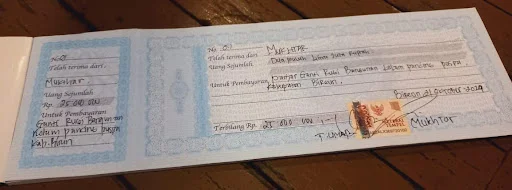 No. 01
Telah terima dari
Mukhtar
Uang Sejumlah
Rp. 25 000 000
Untuk Pembayaran
Ganti Rugi Bangunan
Kolam pancing
Kab. Bireun
No. 01
Telah terima dari, MUKHTAR
Uang Sejumlah Dua puluh Lima Juta Rupiah
Untuk Pembayaran, Ganti Rugi Bangunan kolam pancing
Kabupaten Bireun
Bireun 21 Oktober 2024
Terbilang Rp. 25 000 000 ,-
TEMPEL
T. UMAR
Mukhtar